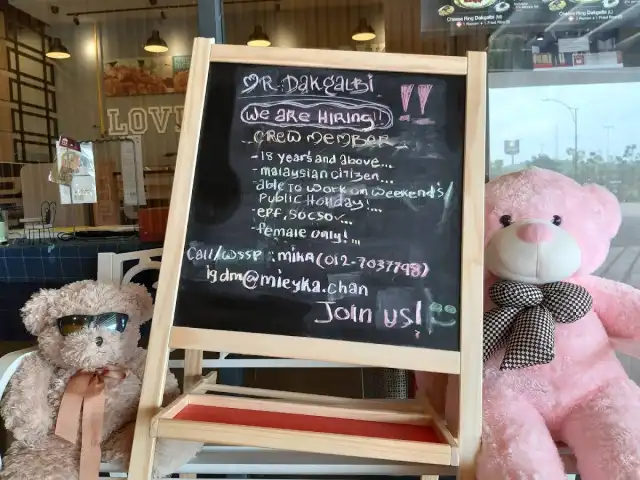 Cheese Ring Dakgalbi (M)
Cheese Ring Dakgalbi (L)
LOVE
Dr. Dakgalbi
We are Hiring!! !!
crew member
- 18 years and above...
- malaysian citizen...
- able to work on weekend's/
Public Holiday!...
- epf, socso...
- female only!...
Call/wssp : mika (012-7037798)
ig dm @mieyka.chan
Join us!